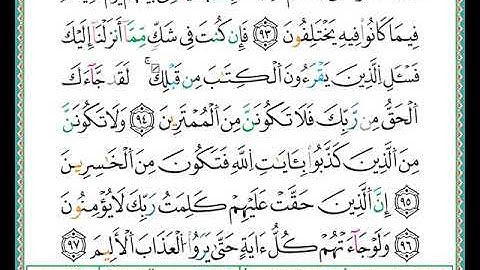 فِيمَا كَانُوا۟ فِيهِ يَخْتَلِفُونَ ٩٣ فَإِن كُنتَ فِى شَكٍّ مِّمَّآ أَنزَلْنَآ إِلَيْكَ
فَسْـَٔلِ ٱلَّذِينَ يَقْرَءُونَ ٱلْكِتَـٰبَ مِن قَبْلِكَ ۚ لَقَدْ جَآءَكَ
ٱلْحَقُّ مِن رَّبِّكَ فَلَا تَكُونَنَّ مِنَ ٱلْمُمْتَرِينَ ٩٤ وَلَا تَكُونَنَّ
مِنَ ٱلَّذِينَ كَذَّبُوا۟ بِـَٔايَـٰتِ ٱللَّهِ فَتَكُونَ مِنَ ٱلْخَـٰسِرِينَ
٩٥ إِنَّ ٱلَّذِينَ حَقَّتْ عَلَيْهِمْ كَلِمَتُ رَبِّكَ لَا يُؤْمِنُونَ
٩٦ وَلَوْ جَآءَتْهُمْ كُلُّ ءَايَةٍ حَتَّىٰ يَرَوُا۟ ٱلْعَذَابَ ٱلْأَلِيمَ ٩٧